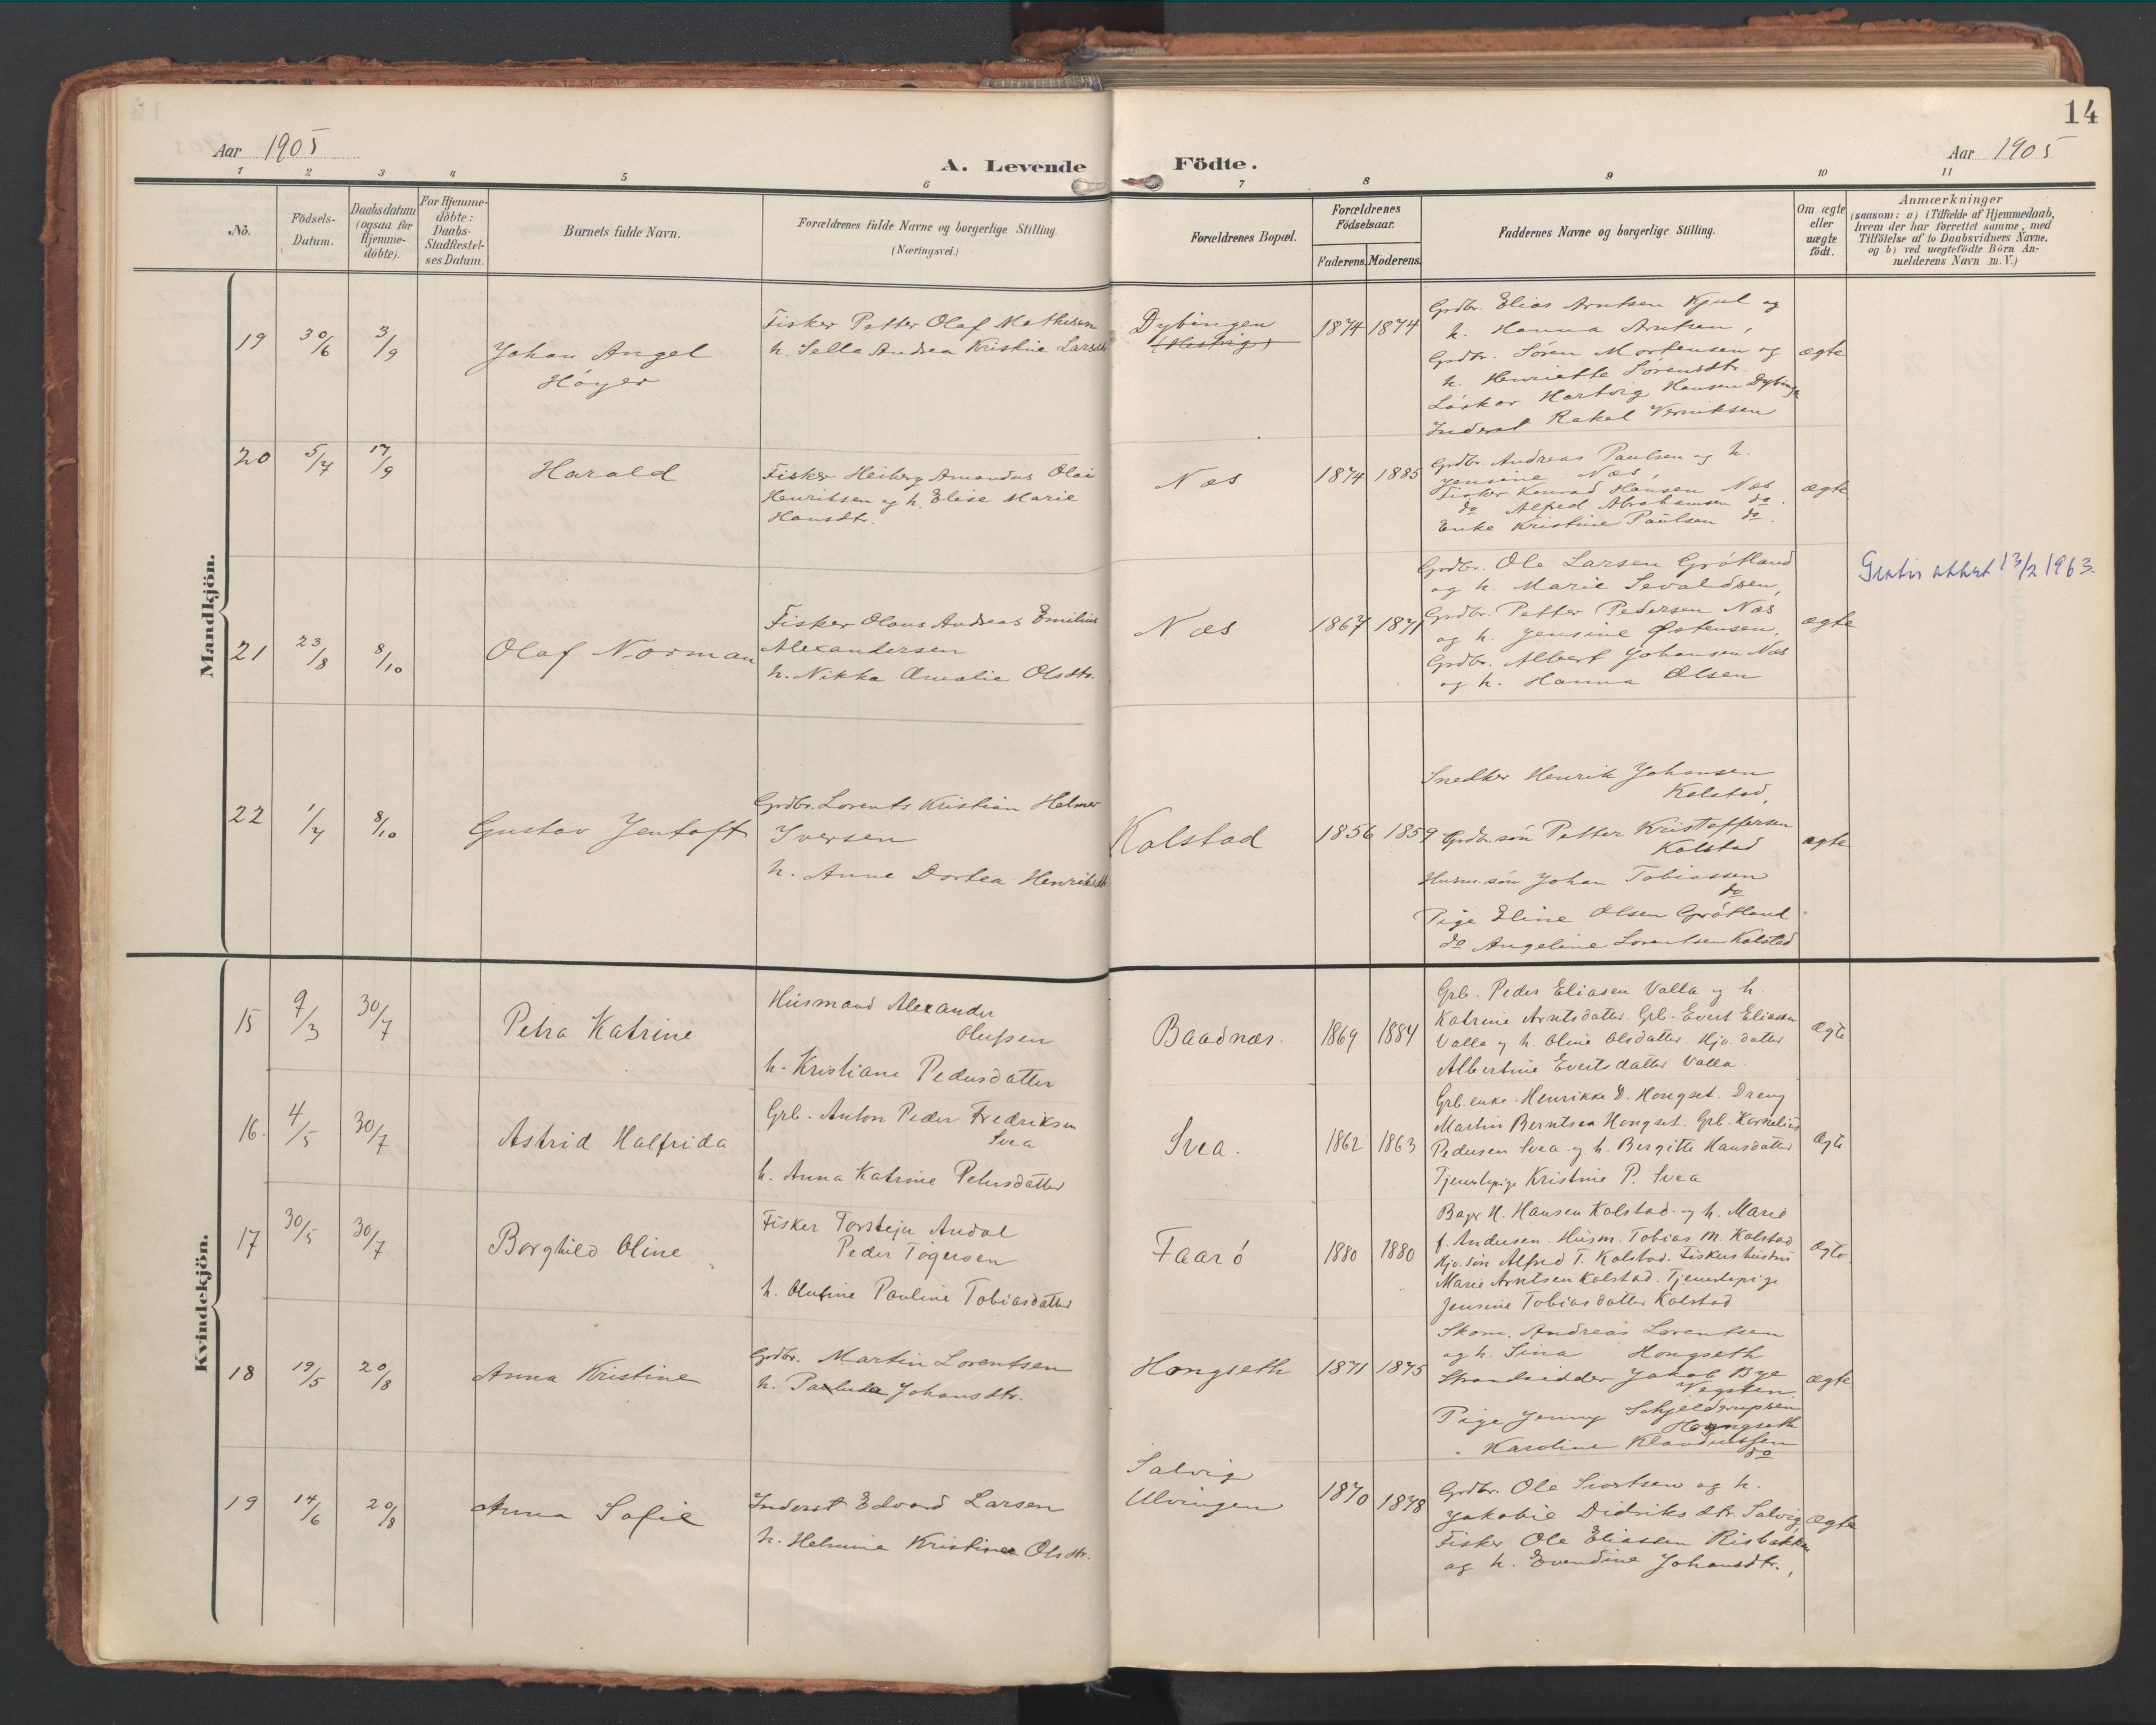 14
Aar 1905
A. Levende Födte.
Aar 1905
1 2 3 4 5 6 7 8 9 10 11
No.
Födsels-
Datum.
Daabsdatum
(ogsaa for
Hjemme-
döbte).
For Hjemme-
döbte:
Daabs-
Stadfæstel-
ses Datum.
Barnets fulde Navn.
Forældrenes fulde Navne og borgerlige Stilling.
(Næringsvei.)
Forældrenes Bopæl.
Forældrenes
Födselsaar.
Faderens. Moderens.
Faddernes Navne og borgerlige Stilling.
Om ægte
eller
uægte
födt.
Anmærkninger
(saasom: a) i Tilfælde af Hjemmedaab,
hvem der har forrettet samme, med
Tilföielse af to Daabsvidners Navne,
og b) ved uægtefödte Börn An-
melderens Navn m. V.)
Mandkjön.
19 30/6 3/9
Johan Angel
Höyer
Fisker Petter Olaf Mathisen
h. Sella Andrea Kristine Larsdtr
Dybingen
1874 1874
Grdbr. Elias Arntsen Kjul og
h. Hanna Arntsen,
Grdbr. Sören Mortensen og
h. Henriette Sörensdtr.
Löskar Hartvig Hansen Dybinge
Inderst Rakel Verniksen
ægte
20 5/7 17/9
Harald
Fisker Heiberg Amandus Olai
Henriksen og h. Elise Marie
Hansdtr.
Næs
1874 1885
Grdbr. Andreas Paulsen og h.
Jensine Næs,
Fisker Konrad Hansen Næs
do Alfred Abrahamsen do.
Enke Kristine Paulsen do.
ægte
21 23/8 8/10
Olaf Norman
Fisker Olaus Andreas Emilius
Alexandersen
h. Nikka Amalie Olsdtr.
Næs
1867 1871
Grdbr. Ole Larsen Grötland
og h. Marie Sevaldsen,
Grdbr. Petter Pedersen Næs
og h. Jensine Østensen,
Grdbr. Albert Johansen Næs
og h. Hanna Olsen
ægte
Gratis attest 13/2 1963.
22 1/7 8/10
Gustav Jentoft
Grdbr. Lorents Kristian Helmer
Iversen
h. Anne Dortea Henriksdtr
Kolstad
1856 1859
Snedker Henrik Johansen
Kolstad,
Grdbr. sön Petter Kristoffersen
Kolstad
Husm. sön Johan Tobiassen
do
Pige Eline Olsen Grötland
do Angeline Lorentsen Kolstad
ægte
Kvindekjön.
15 9/3 30/7
Petra Katrine
Husmand Alexander
Olufsen
h. Kristiane Pedersdatter
Baadnæs.
1869 1884
Grb. Peder Eliasen Valla og h.
Katrine Arntsdatter. Grb. Evert Eliasen
Valla og h. Oline Olsdatter. Hjv. datter
Albertine Evertsdatter Valla.
Ægte
16. 4/5 30/7
Astrid Halfrida
Grb. Anton Peder Fredriksen
Svea
h. Anna Katrine Petersdatter
Svea.
1862 1863
Grb. enke. Henrikke D. Hongset. Dreng
Martin Berntsen Hongset. Grb. Kornelius
Pedersen Svea og h. Bergitte Hansdatter
Tjenestepige Kristine P. Svea
Ægte
17 30/5 30/7
Borghild Oline
Fisker Torstein Andal
Peder Tögersen
h. Olufine Pauline Tobiasdatter
Faarö
1880 1880
Bagr H. Hansen Kolstad. og h. Marie
f. Andersen. Husm. Tobias M. Kolstad
Hjv. sön Alfred T. Kolstad. Fiskers hustru
Marie Arntsen Kolstad. Tjenestepige
Jensine Tobiasdatter Kolstad
Ægte
18 19/5 20/8
Anna Kristine
Grdbr. Martin Lorentsen
h. Johansdtr.
Hongseth
1871 1875
Skom. Andreas Lorentsen
og h. Sina Hongseth
Strandsidder Jakob Bye
Vegsten.
Pige Jenny Schjelderupsen
Hongseth
" Karoline Klaudiussen
do
ægte
19 14/6 20/8
Anna Sofie
Inderst Edvard Larsen
h. Helmine Kristine Olsdtr.
Salvig
Ulvingen
1870 1878
Grdbr. Ole Sivertsen og h.
Jakobie Didriksdtr. Salvig,
Fisker Ole Eliassen Risbakken
og h. Evendine Johansdtr.,
Ægte